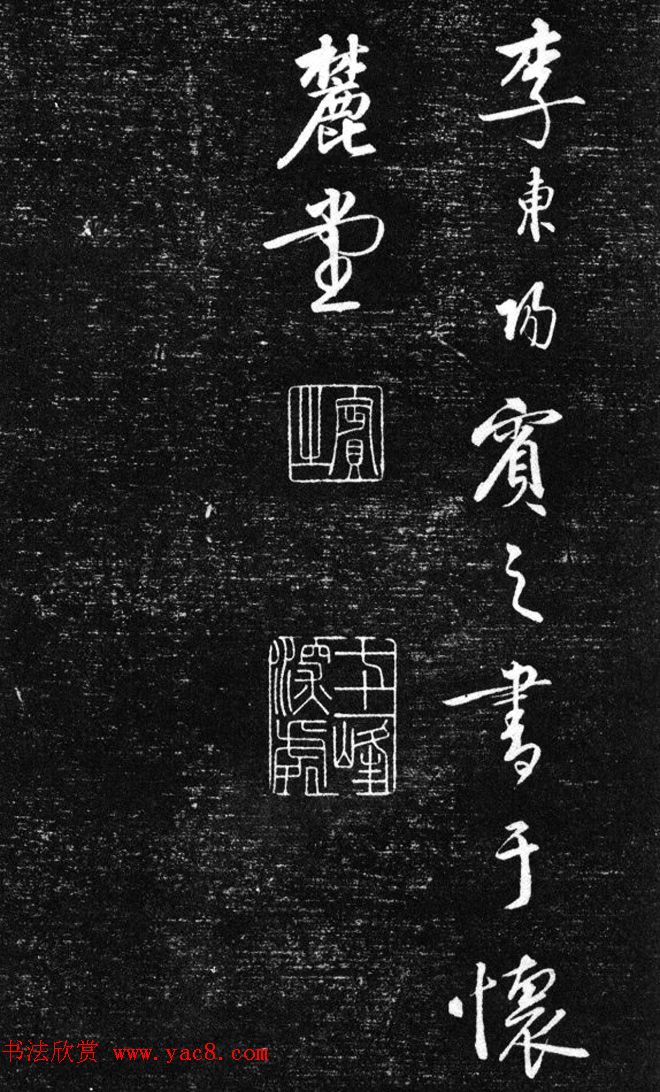 李東陽賓之書于懷
麓堂
賓之
七十二峰深處
书法欣赏 www.yac8.com